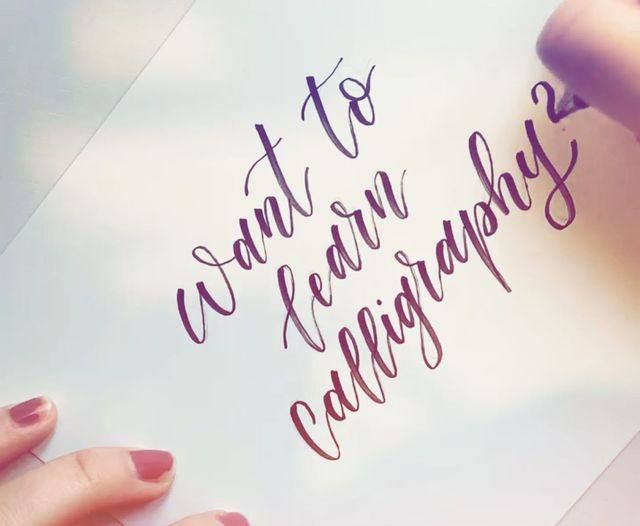 want to
learn
calligraphy?